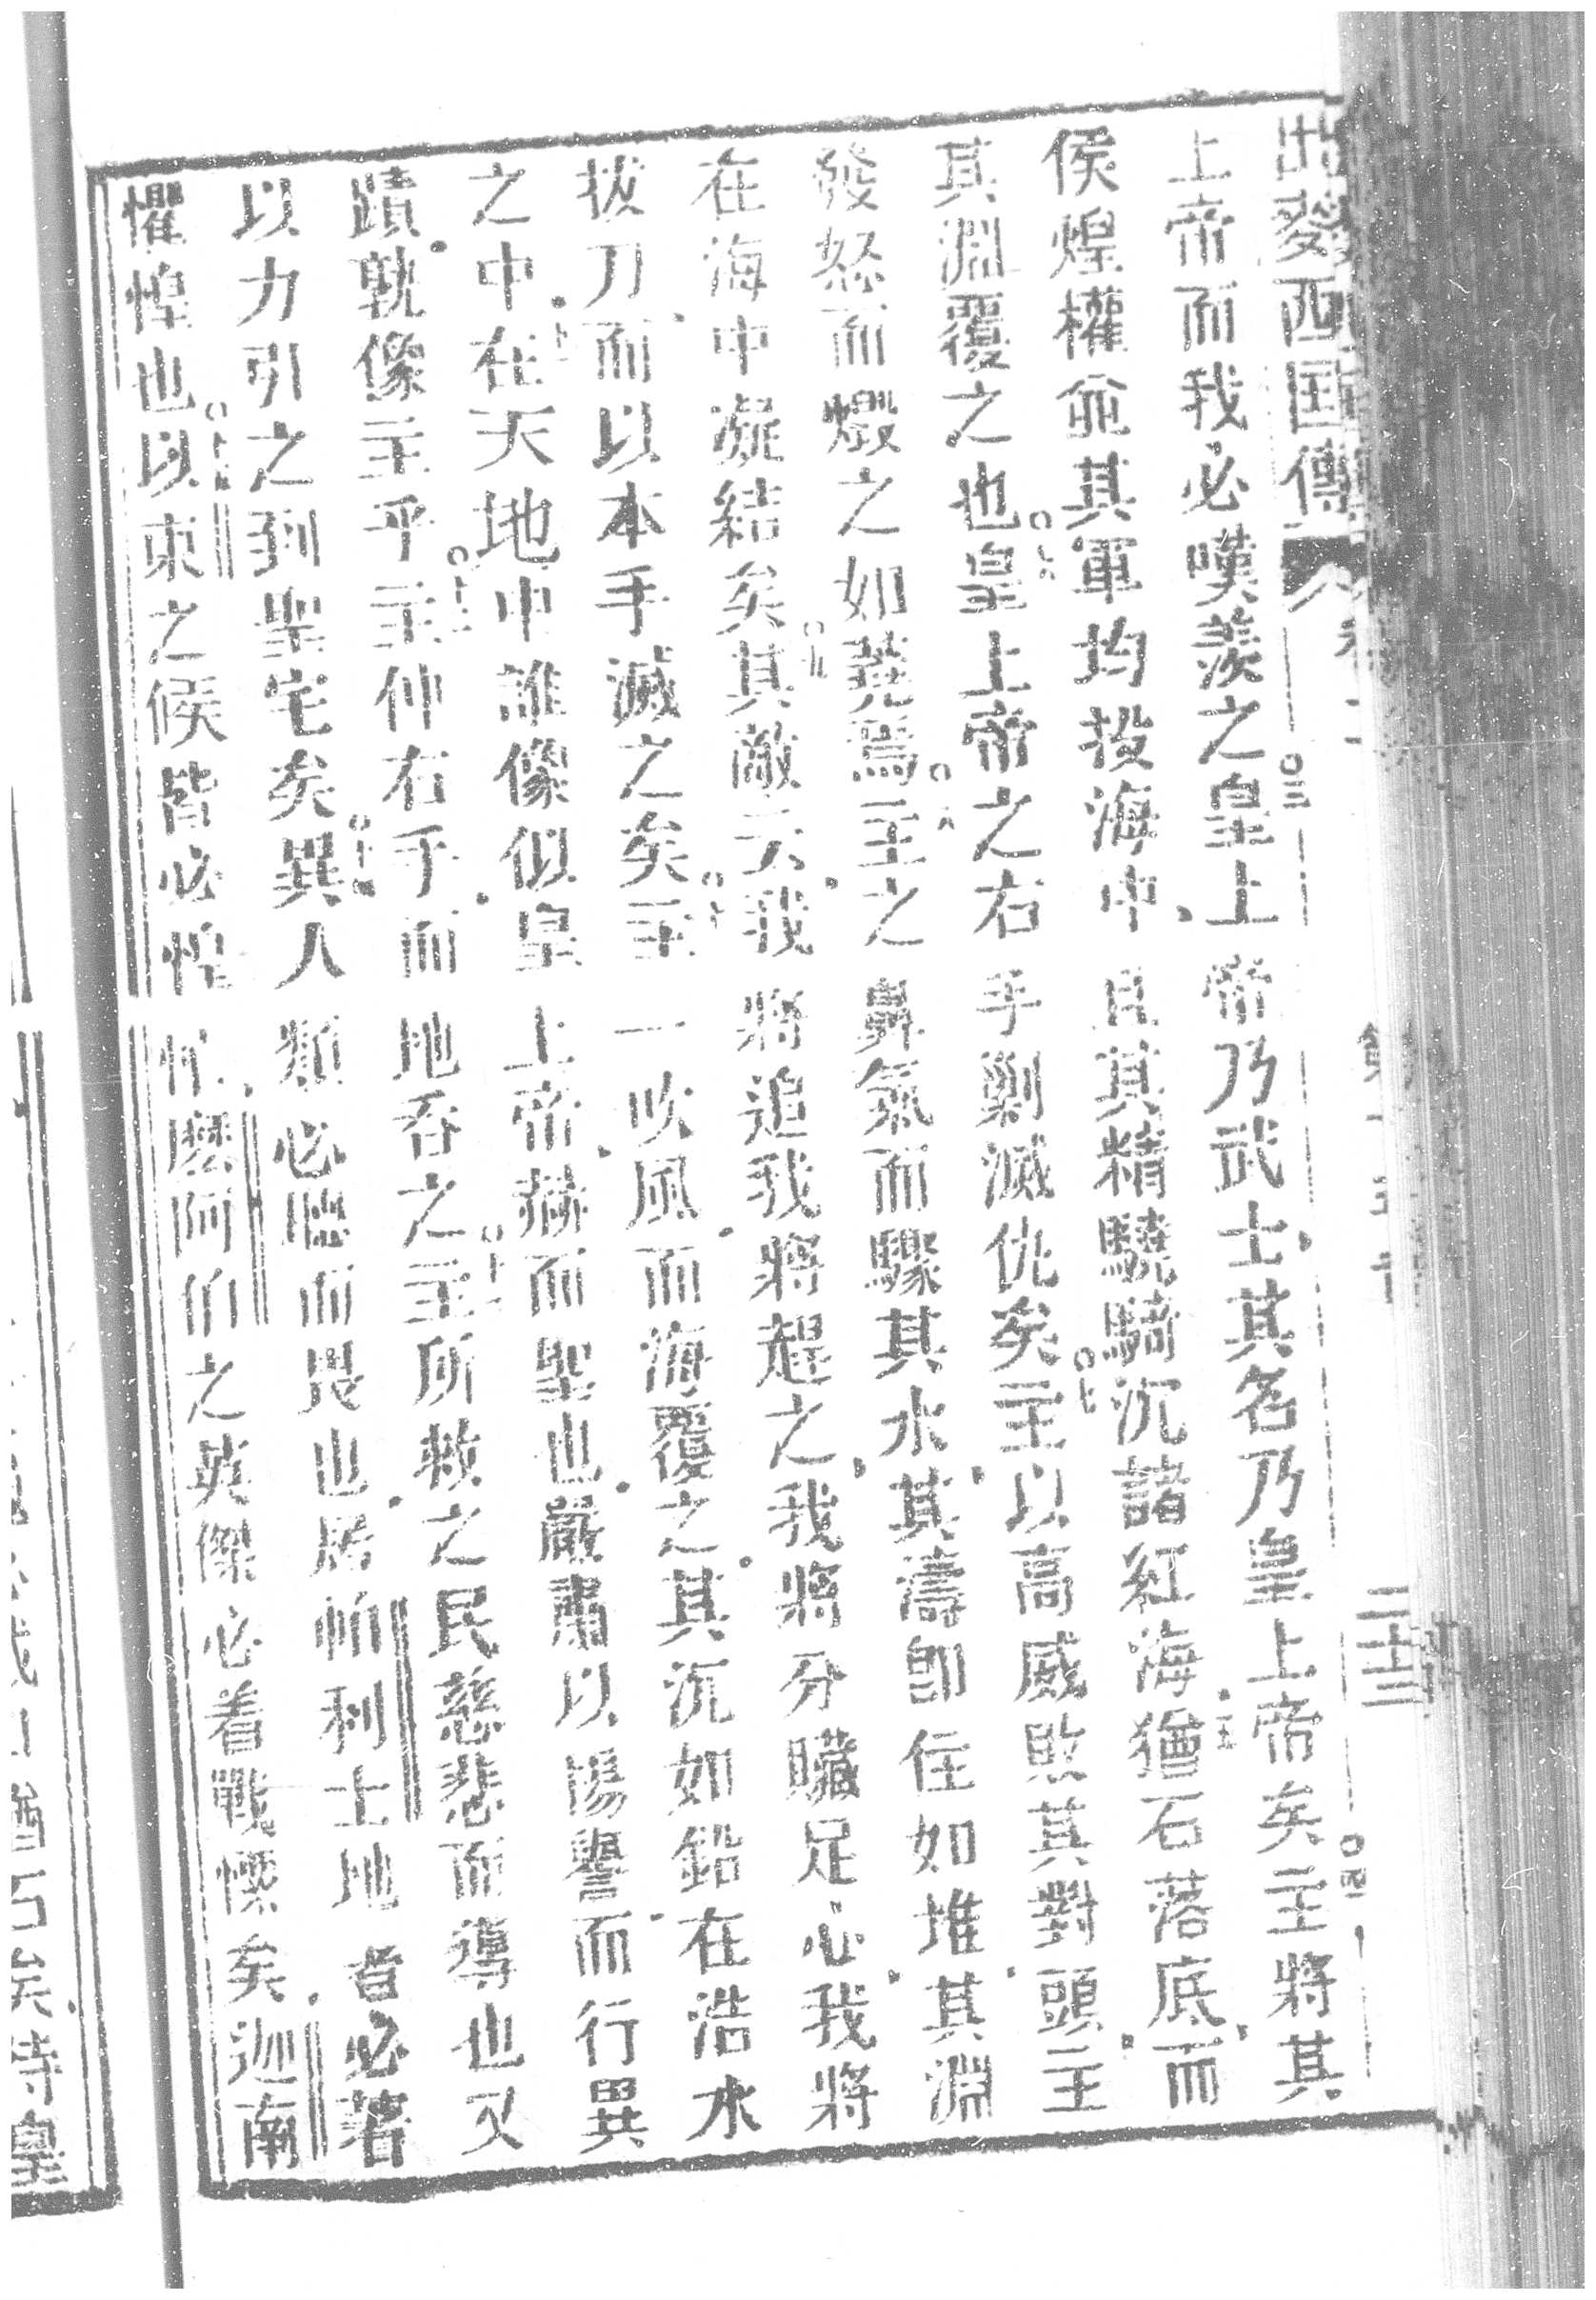 出麥西国傳 二十三
上帝而我必嘆羨之皇上帝乃武士其名乃皇上帝矣主將其
侯煌權並其軍均投海中且其精驍騎沉諸紅海猶石落底而
其淵覆之也皇上帝之右手剿滅仇矣主以高威敗其對頭主
發怒而燬之如蕘焉主之鼻氣而驟其水其濤即住如堆其淵
在海中凝結矣其敵云我將追我將趕之我將分贓足心我將
拔刀而以本手滅之矣主一吹風而海覆之其沉如鉛在浩水
之中在天地中誰像似皇上帝赫而聖也嚴肅以揚譽而行異
蹟孰像主乎主伸右手而地吞之主所救之民慈悲而導也又
以力引之到聖宅矣異人類必聽而畏也居帕利士地者必著
懼惶也以東之候皆必惶忙麽阿伯之英傑必着戰慄矣迦南